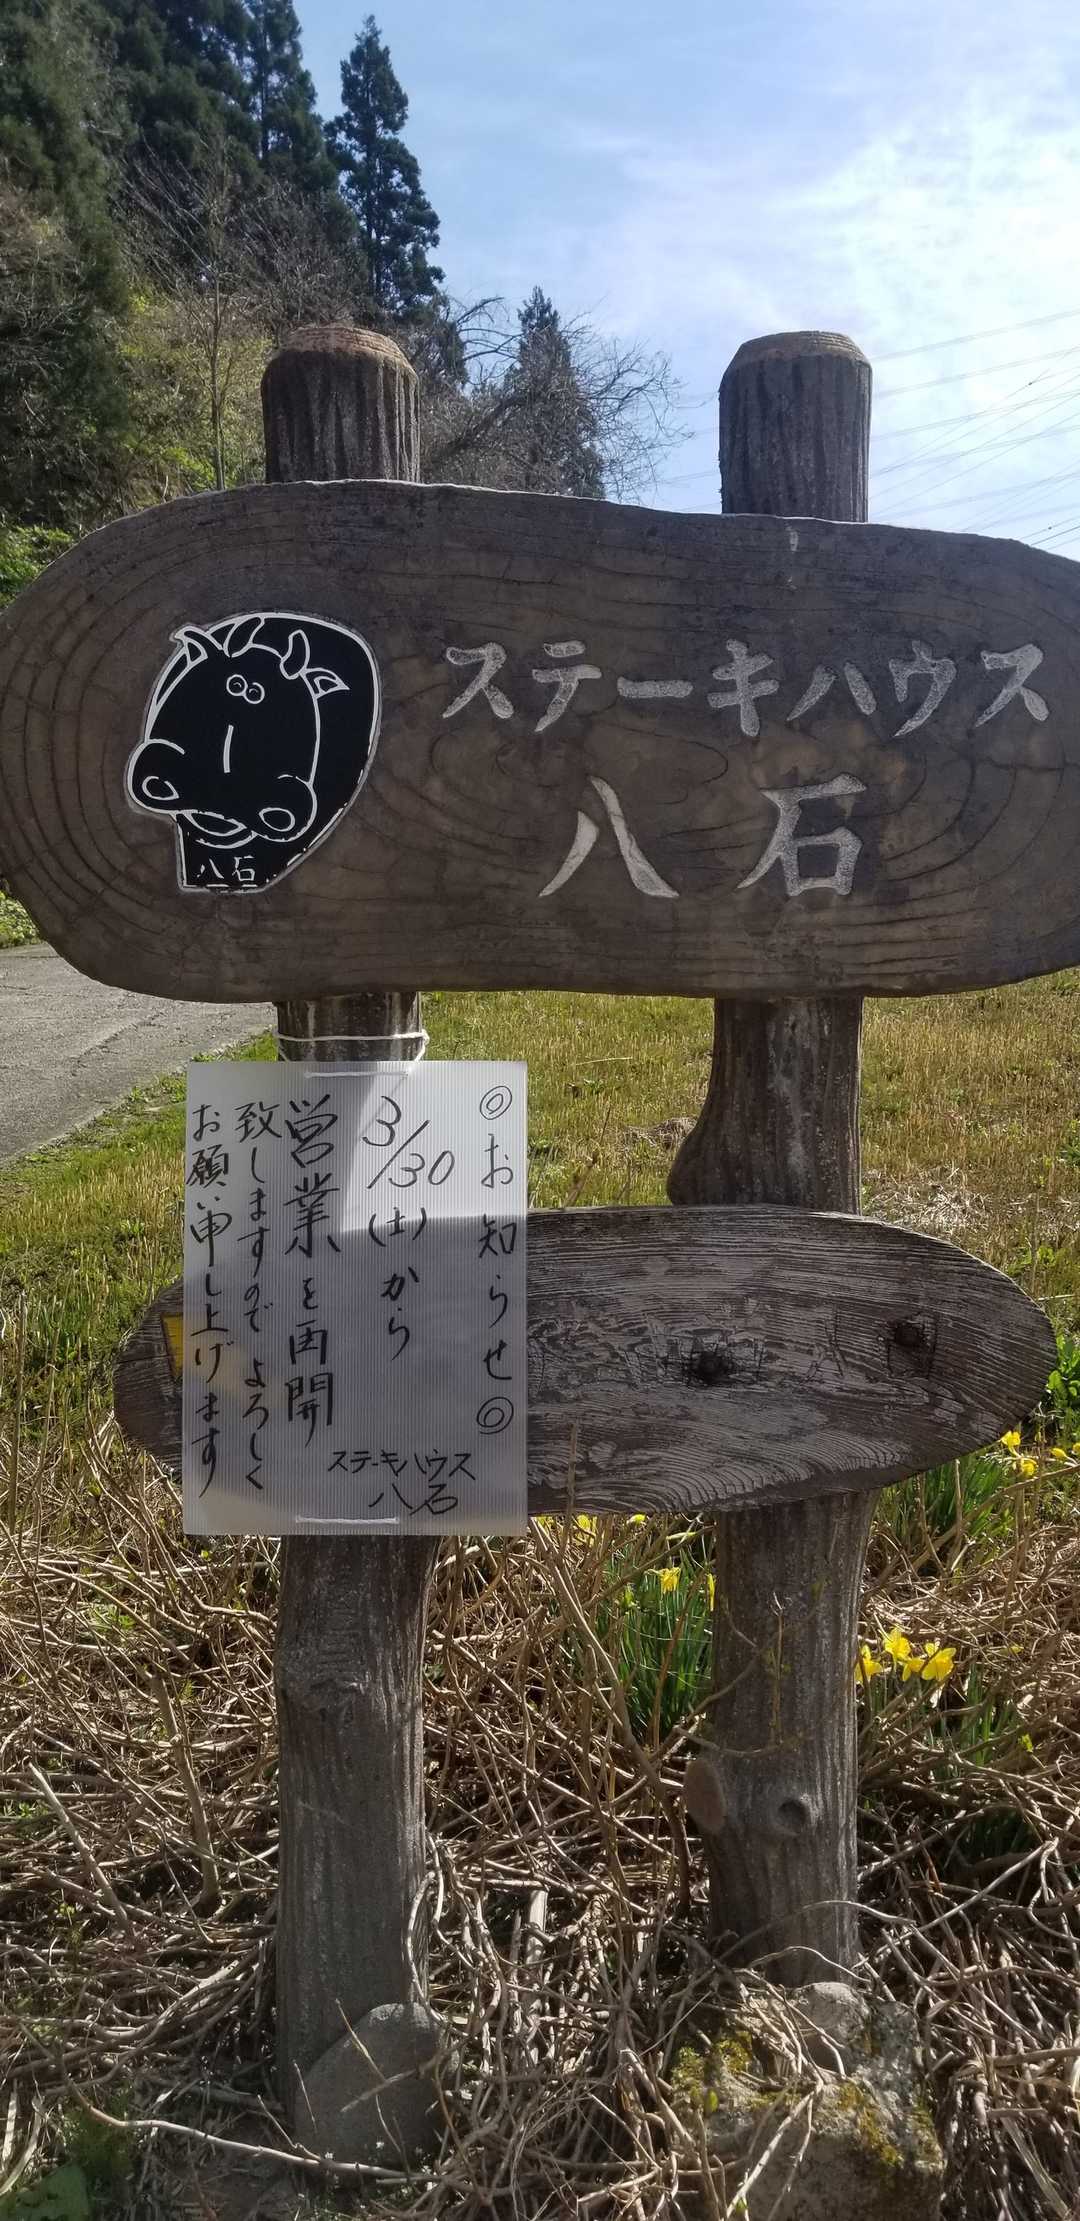 ステーキハウス
八石
八石
◎お知らせ◎
3/30(土)から
営業を再開
致しますのでよろしく
お願い申し上げます
ステーキハウス
八石